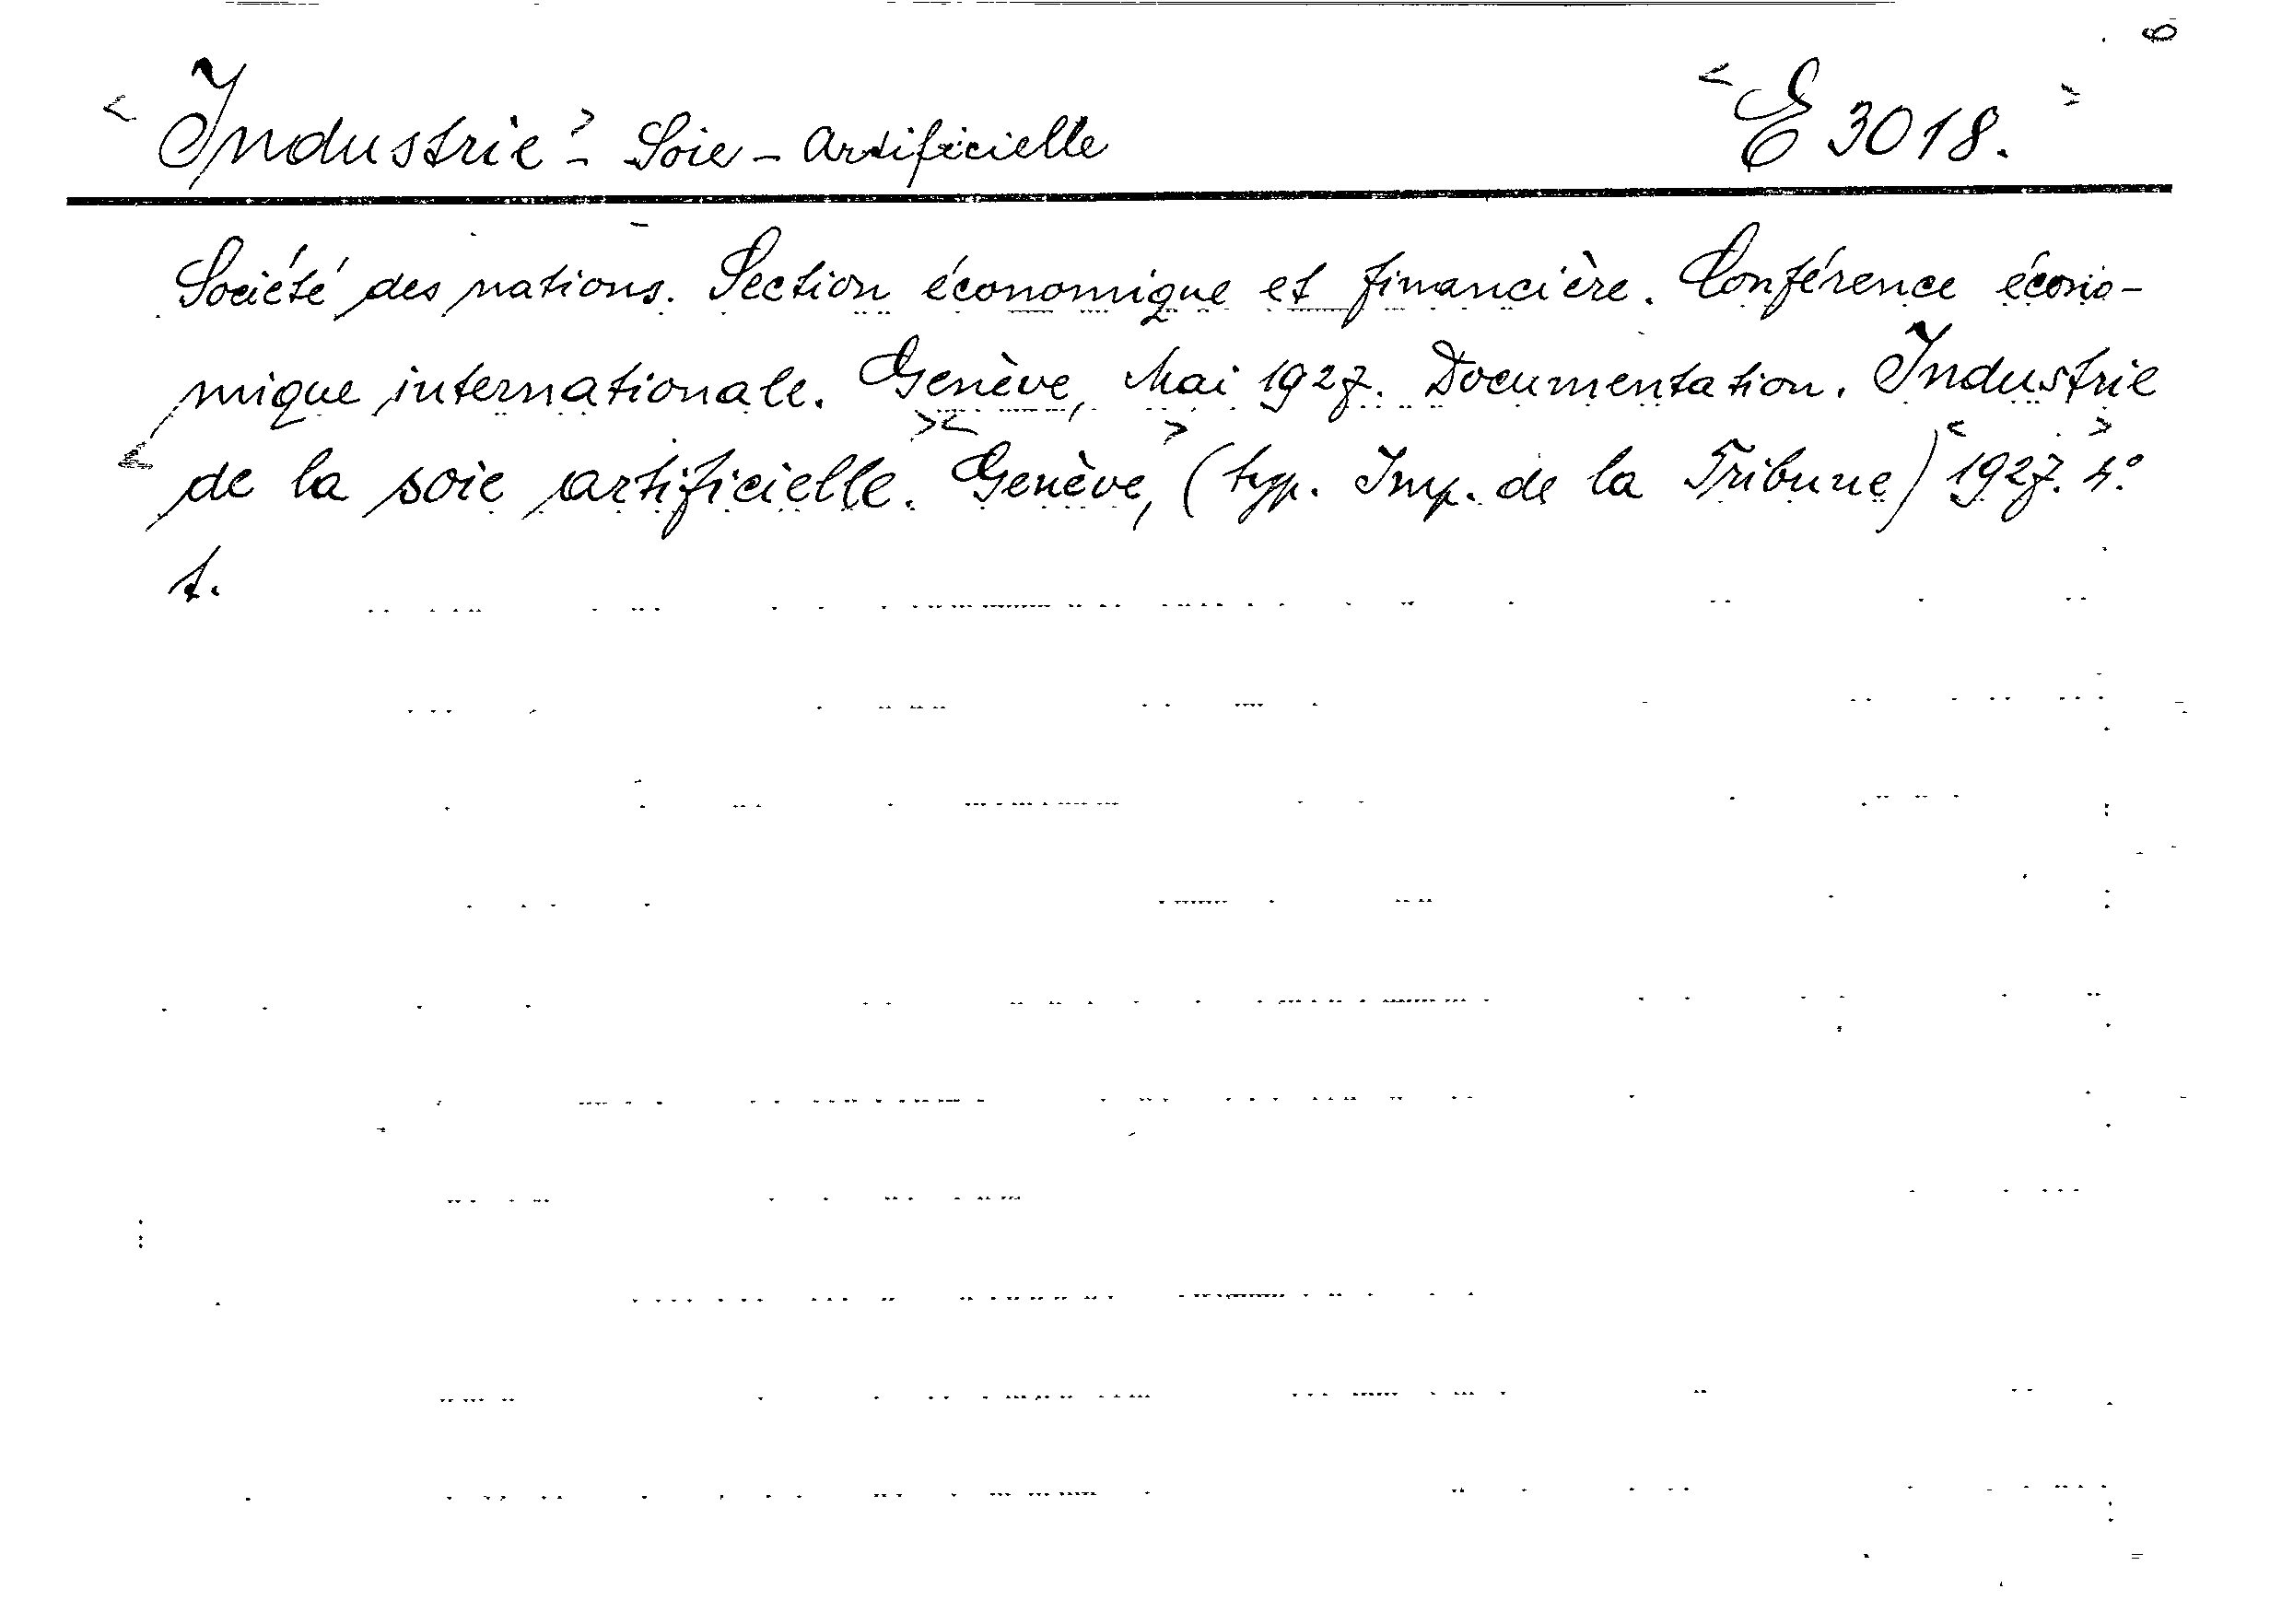 < Industrie > - Soie - Artificielle < E 3018. >
Société des nations. Section économique et financière. Conférence écono-
mique internationale. Genève, Mai 1927. Documentation. Industrie
< de la soie artificielle. >< Genève, > (typ. Imp. de la Tribune) < 1927. > 4°.
t.